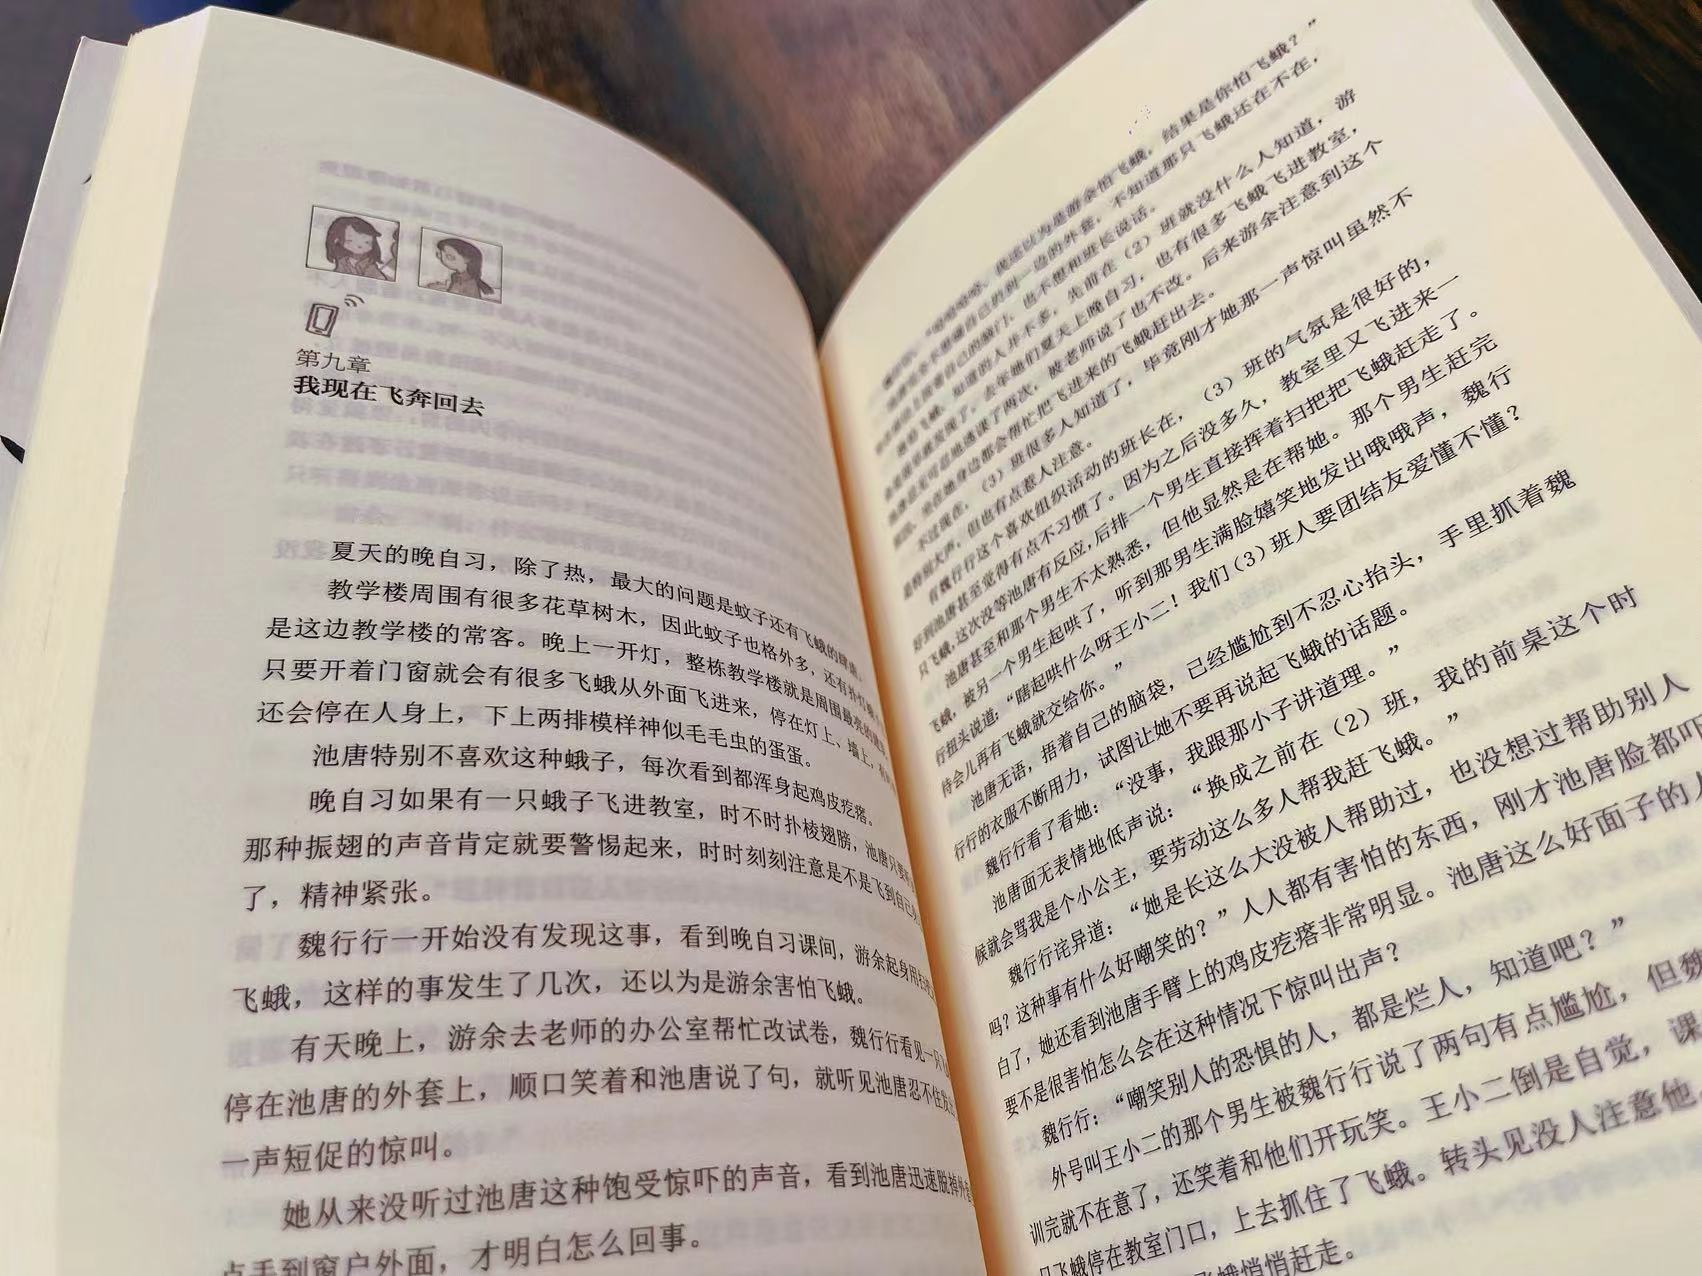 第九章
我现在飞奔回去
夏天的晚自习，除了热，最大的问题是蚊子还有飞蛾的
教学楼周围有很多花草树木，因此蚊子也格外多，还有扑灯
是这边教学楼的常客。晚上一开灯，整栋教学楼就是周围最亮的
只要开着门窗就会有很多飞蛾从外面飞进来，停在灯上、墙上，
还会停在人身上，下上两排模样神似毛毛虫的蛋蛋。
池唐特别不喜欢这种蛾子，每次看到都浑身起鸡皮疙瘩。
晚自习如果有一只蛾子飞进教室，时不时扑棱翅膀，池唐只要
那种振翅的声音肯定就要警惕起来，时时刻刻注意是不是飞到自己
了，精神紧张。
魏行行一开始没有发现这事，看到晚自习课间，游余起身用
飞蛾，这样的事发生了几次，还以为是游余害怕飞蛾。
有天晚上，游余去老师的办公室帮忙改试卷，魏行行看见一只
停在池唐的外套上，顺口笑着和池唐说了句，就听见池唐忍不住
一声短促的惊叫。
她从来没听过池唐这种饱受惊吓的声音，看到池唐迅速脱掉外
点手到窗户外面，才明白怎么回事。
我还以为是游余怕飞蛾，结果是你怕飞蛾？”
自己的到一边的外套，不知道那只飞蛾还在不在，
自己的脑门，也不想和班长说话。
知道的人并不多，先前在（2）班就没什么人知道，游
去年她们夏天上晚自习，也有很多飞蛾飞进教室，
被老师说了也不改。后来游余注意到这个
都会帮忙把飞进来的飞蛾赶出去。
不过现在，（3）班很多人知道了，毕竟刚才她那一声惊叫虽然不
是特别大声，但也有点惹人注意。
有魏行行这个喜欢组织活动的班长在，（3）班的气氛是很好的，
好到池唐甚至觉得有点不习惯了。因为之后没多久，教室里又飞进来一
只飞蛾，这次没等池唐有反应，后排一个男生直接挥着扫把把飞蛾赶走了。
池唐甚至和那个男生不太熟悉，但他显然是在帮她。那个男生赶完
飞蛾，被另一个男生起哄了，听到那男生满脸嬉笑地发出哦哦声，魏行
行扭头说道：“瞎起哄什么呀王小二！我们（3）班人要团结友爱懂不懂？
待会儿再有飞蛾就交给你。”
池唐无语，捂着自己的脑袋，已经尴尬到不忍心抬头，手里抓着魏
行行的衣服不断用力，试图让她不要再说起飞蛾的话题。
魏行行看了看她：“没事，我跟那小子讲道理。”
池唐面无表情地低声说：“换成之前在（2）班，我的前桌这个时
候就会骂我是个小公主，要劳动这么多人帮我赶飞蛾。”
魏行行诧异道：“她是长这么大没被人帮助过，也没想过帮助别人
吗？这种事有什么好嘲笑的？”人人都有害怕的东西，刚才池唐脸都吓
白了，她还看到池唐手臂上的鸡皮疙瘩非常明显。池唐这么好面子的人
要不是很害怕怎么会在这种情况下惊叫出声？
魏行行：“嘲笑别人的恐惧的人，都是烂人，知道吧？”
外号叫王小二的那个男生被魏行行说了两句有点尴尬，但魏
训完就不在意了，还笑着和他们开玩笑。王小二倒是自觉，课
只飞蛾停在教室门口，上去抓住了飞蛾。转头见没人注意他，
飞蛾悄悄赶走。